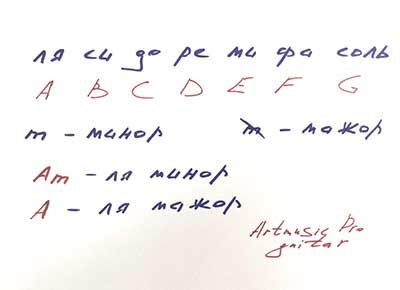 ля си до ре ми фа соль
A B C D E F G
m - минор m - мажор
Am - ля минор
A - ля мажор
Artmusiq Pro
guitar